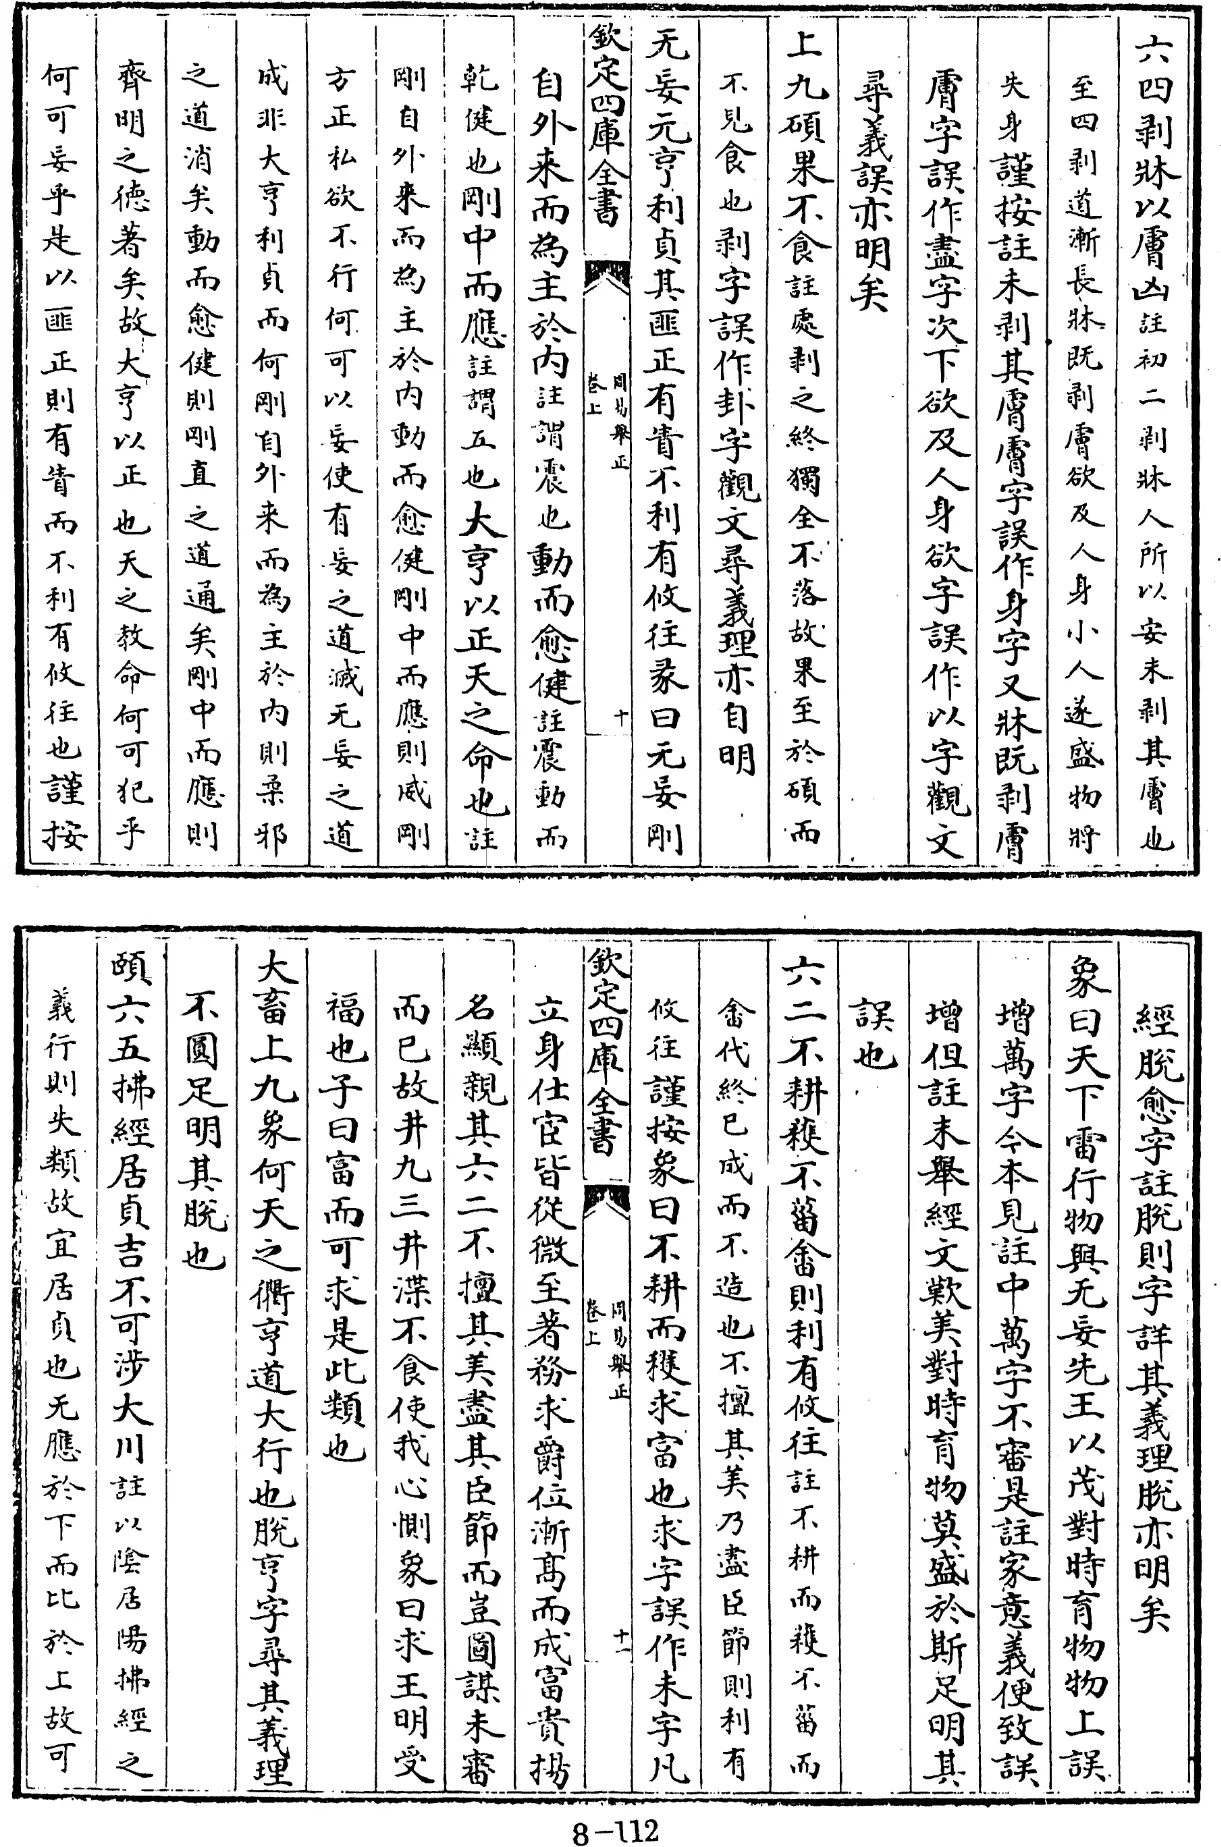 六四剥牀以膚凶註初二剥牀人所以安未剥其膚也
至四剥道漸長牀既剥膚欲及人身小人遂盛物將
失身謹按註未剥其膚膚字誤作身字又牀既剥膚
膚字誤作盡字次下欲及人身欲字誤作以字觀文
尋義誤亦明矣
上九碩果不食註處剥之終獨全不落故果至於碩而
不見食也剥字誤作卦字觀文尋義理亦自明
无妄元亨利貞其匪正有眚不利有攸往彖曰无妄剛
欽定四庫全書
周易舉正
卷上
十
自外来而為主於内註謂震也動而愈健註震動而
乾健也剛中而應註謂五也大亨以正天之命也註
剛自外来而為主於内動而愈健剛中而應則威剛
方正私欲不行何可以妄使有妄之道滅无妄之道
成非大亨利貞而何剛自外来而為主於内則柔邪
之道消矣動而愈健則剛直之道通矣剛中而應則
齊明之徳著矣故大亨以正也天之教命何可犯乎
何可妄乎是以匪正則有眚而不利有攸往也謹按
經脫愈字註脫則字詳其義理脫亦明矣
象曰天下雷行物與无妄先王以茂對時育物物上誤
增萬字今本見註中萬字不審是註家意義便致誤
增但註末舉經文歎美對時育物莫盛於斯足明其
誤也
六二不耕穫不菑畬則利有攸往註不耕而穫不菑而
畬代終已成而不造也不擅其美乃盡臣節則利有
攸往謹按象曰不耕而穫求富也求字誤作未字凡
欽定四庫全書
周易舉正
卷上
十一
立身仕宦皆從微至著務求爵位漸髙而成富貴揚
名顯親其六二不擅其美盡其臣節而豈圖謀未審
而已故井九三井渫不食使我心惻象曰求王明受
福也子曰富而可求是此類也
大畜上九象何天之衢亨道大行也脫亨字尋其義理
不圓足明其脫也
頤六五拂經居貞吉不可涉大川註以陰居陽拂經之
義行則失類故宜居貞也无應於下而比於上故可
8-112